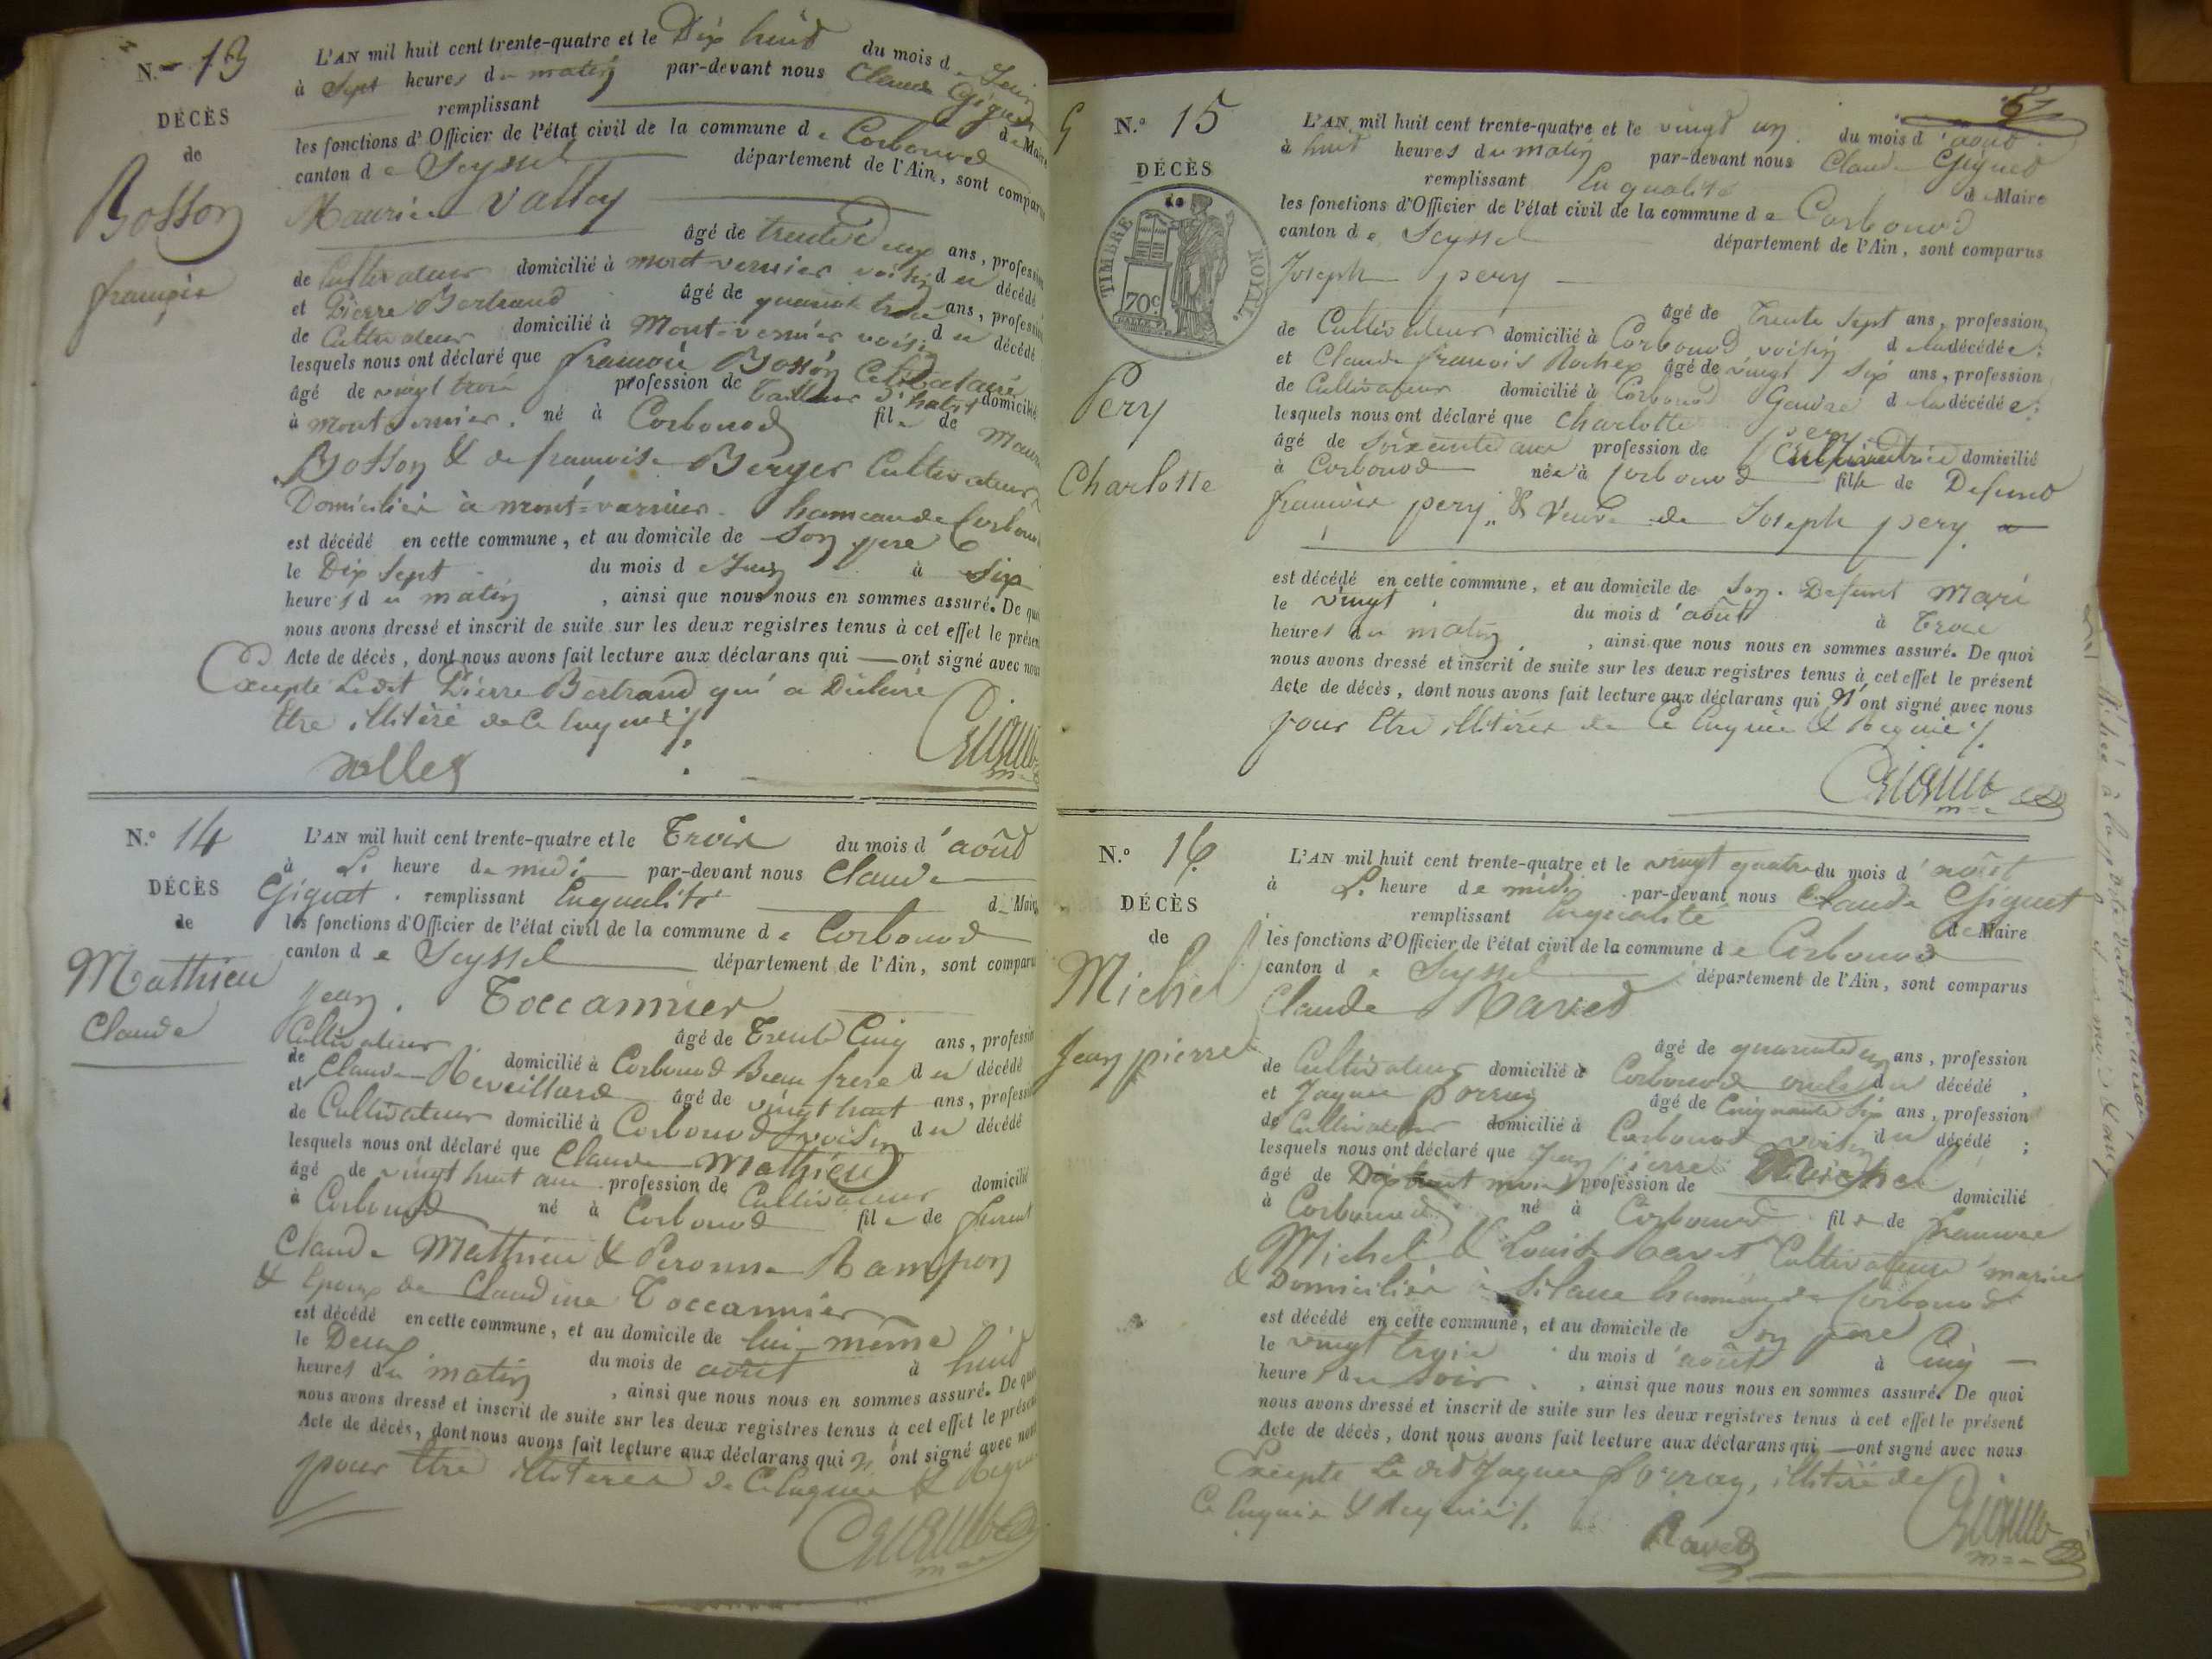 N.º 13
DÉCÈS
de
Bosson
françois
L'AN mil huit cent trente-quatre et le Dix huit du mois d
à Sept heures du matin par-devant nous Claude Giguet
remplissant
de Maire
les fonctions d'Officier de l'état civil de la commune de Corbonod
canton de Seyssel département de l'Ain, sont comparus
Maurice Vallet
âgé de trente Deux ans, profession
de Cultivateur domicilié à mont-vernier voisin du décédé
et Pierre Bertrand âgé de quarante trois ans, profession
de Cultivateur domicilié à Mont-vernier voisin du décédé
lesquels nous ont déclaré que françois Bosson Célibataire
âgé de vingt trois profession de Tailleur d'habit domicilié
à mont vernier. né à Corbonod fils de
Bosson & de françoise Berger Cultivateurs
Domiciliés à mont-vernier. hameau de Corbonod
est décédé en cette commune, et au domicile de Son pere
le Dix Sept du mois de Juin à Six
heures du matin, ainsi que nous nous en sommes assuré. De quoi
nous avons dressé et inscrit de suite sur les deux registres tenus à cet effet le présent
Acte de décès, dont nous avons fait lecture aux déclarans qui — ont signé avec nous
Excepté Ledit Pierre Bertrand qui a Déclaré
être illitéré de ce Enquis
N.º 14
DÉCÈS
de
Mathieu
Claude
L'AN mil huit cent trente-quatre et le Trois du mois d'août
à L. heure de midi par-devant nous Claude
Giguet. remplissant Enqualité de Maire
les fonctions d'Officier de l'état civil de la commune de Corbonod
canton de Seyssel département de l'Ain, sont comparus
Jean Toccannier
Cultivateur âgé de Trente Cinq ans, profession
de domicilié à Corbonod Beau frere du décédé
et Claude Reveillard âgé de vingt huit ans, profession
de Cultivateur domicilié à Corbonod voisin du décédé
lesquels nous ont déclaré que Claude Mathieu
âgé de vingt huit ans profession de Cultivateur domicilié
à Corbonod né à Corbonod fils de
Claude Mathieu & Peronne Rampon
& Epoux de Claudine Toccannier
est décédé en cette commune, et au domicile de lui-même
le Deux du mois de août à huit
heures du matin, ainsi que nous nous en sommes assuré. De quoi
nous avons dressé et inscrit de suite sur les deux registres tenus à cet effet le présent
Acte de décès, dont nous avons fait lecture aux déclarans qui n'ont signé avec nous
pour être illitérés de Ce Enquis & Requis
N.º 15
DÉCÈS
de
TIMBRE ROYAL
70c
Pery
Charlotte
L'AN mil huit cent trente-quatre et le vingt un du mois d'août
à huit heures du matin par-devant nous Claude Giguet
remplissant En qualité de Maire
les fonctions d'Officier de l'état civil de la commune de Corbonod
canton de Seyssel département de l'Ain, sont comparus
Joseph pery
âgé de Trente Sept ans, profession
de Cultivateur domicilié à Corbonod voisin de la décédée;
et Claude françois Rochex âgé de vingt Six ans, profession
de Cultivateur domicilié à Corbonod Gendre de la décédée;
lesquels nous ont déclaré que Charlotte pery
âgé de Soixante ans profession de Cultivatrice domicilié
à Corbonod née à Corbonod fille de Defunt
françois pery, & Veuve de Joseph pery
est décédé en cette commune, et au domicile de Son Defunt Mari
le vingt du mois d'août à Trois
heures du matin, ainsi que nous nous en sommes assuré. De quoi
nous avons dressé et inscrit de suite sur les deux registres tenus à cet effet le présent
Acte de décès, dont nous avons fait lecture aux déclarans qui n'ont signé avec nous
pour être illitérés de Ce Enquis & Requis
N.º 16
DÉCÈS
de
Michel
Jean pierre
L'AN mil huit cent trente-quatre et le vingt quatre du mois d'août
à L. heure de midi par-devant nous Claude Giguet
remplissant Enqualité de Maire
les fonctions d'Officier de l'état civil de la commune de Corbonod
canton de Seyssel département de l'Ain, sont comparus
Claude Ravet
âgé de quarante un ans, profession
de Cultivateur domicilié à Corbonod oncle du décédé,
et Jaques âgé de Cinquante Six ans, profession
de Cultivateur domicilié à Corbonod voisin du décédé;
lesquels nous ont déclaré que Jean pierre Michel
âgé de Dix huit mois profession de domicilié
à Corbonod né à Corbonod fils de françois
Michel & Louise Ravet Cultivateurs mariés
& Domiciliés à Silans hameau de Corbonod
est décédé en cette commune, et au domicile de Son pere
le vingt trois du mois d'août à Cinq
heures du soir, ainsi que nous nous en sommes assuré. De quoi
nous avons dressé et inscrit de suite sur les deux registres tenus à cet effet le présent
Acte de décès, dont nous avons fait lecture aux déclarans qui — ont signé avec nous
Excepté Le dit Jaques illitéré de
Ce Enquis & Requis
Ravet